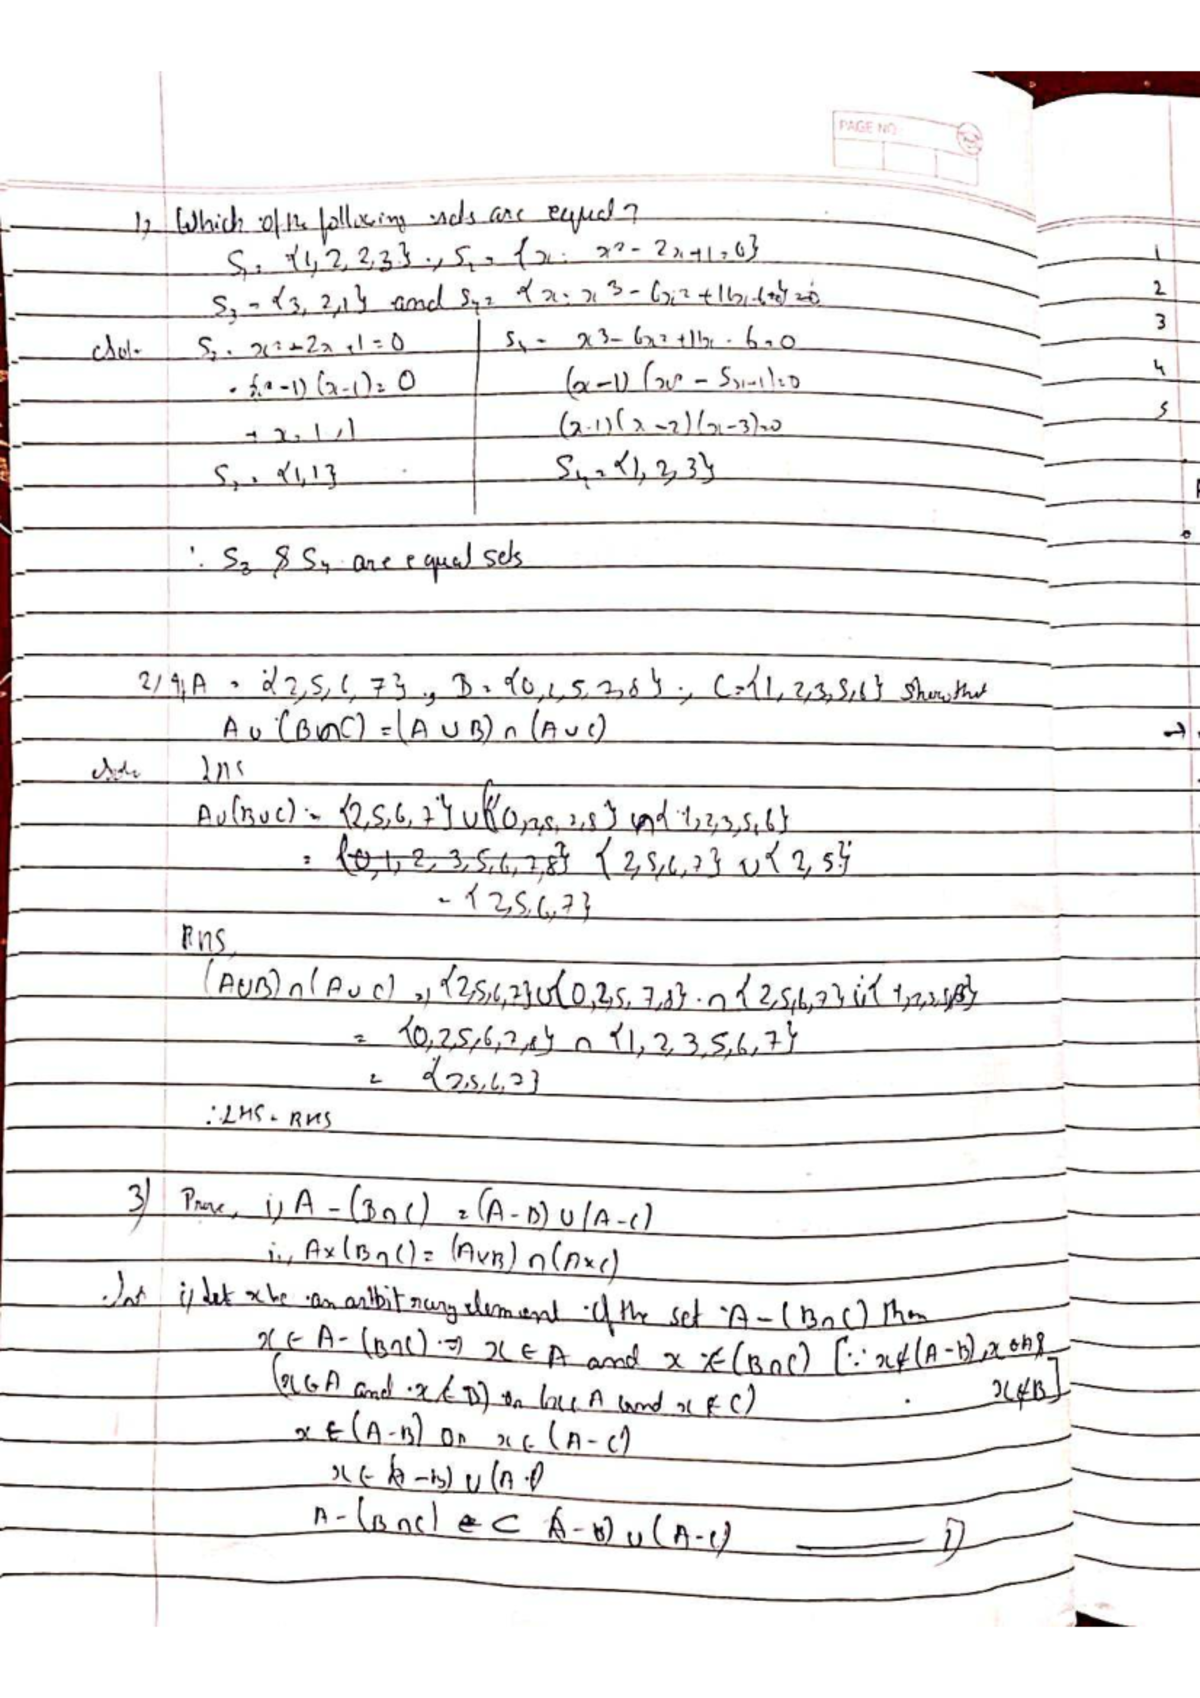 PAGE NO.
1) Which of the following sets are equal?
S₁ = {1, 2, 2, 3}, S₂ = {x : x² - 2x + 1 = 0}
S₃ = {3, 2, 1} and S₄ = {x : x³ - 6x² + 11x - 6 = 0}
Sol-
S₂ = x² - 2x + 1 = 0
(x - 1) (x - 1) = 0
x = 1, 1
S₂ = {1, 1}
S₄ = x³ - 6x² + 11x - 6 = 0
(x - 1) (x² - 5x - 1) = 0
(x - 1) (x - 2) (x - 3) = 0
S₄ = {1, 2, 3}
∴ S₃ & S₄ are equal sets
2) If A = {2, 5, 6, 7}, B = {0, 2, 5, 7, 8}, C = {1, 2, 3, 5, 6} Show that
A ∪ (B ∩ C) = (A ∪ B) ∩ (A ∪ C)
LHS
A ∪ (B ∪ C) = {2, 5, 6, 7} ∪ {{0, 2, 5, 7, 8} ∩ {1, 2, 3, 5, 6}
= {0, 1, 2, 3, 5, 6, 7, 8} {2, 5, 6, 7} ∪ {2, 5}
= {2, 5, 6, 7}
RHS,
(A ∪ B) ∩ (A ∪ C) = {2, 5, 6, 7} ∪ {0, 2, 5, 7, 8} ∩ {2, 5, 6, 7} ∪
= {0, 2, 5, 6, 7, 8} ∩ {1, 2, 3, 5, 6, 7}
= {2, 5, 6, 7}
∴ LHS = RHS
3) Prove, i) A - (B ∩ C) = (A - B) ∪ (A - C)
ii, A × (B ∩ C) = (A × B) ∩ (A × C)
i) Let x be an arbitrary element of the set A - (B ∩ C) then
x ∈ A - (B ∩ C) ⇒ x ∈ A and x ∉ (B ∩ C) [∵ x ∉ (A - B), x ∈ A &
(x ∈ A and x ∉ B) or (x ∈ A and x ∉ C) x ∉ B]
x ∈ (A - B) or x ∈ (A - C)
x ∈ (A - B) ∪ (A -
A - (B ∩ C) ⊂ (A - B) ∪ (A - C) — i)
1
2
3
4
5